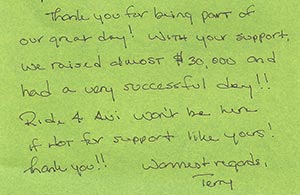 Thank you for being part of
our great day! With your support,
we raised almost $30,000 and
had a very successful day!!
Ride 4 Avi won't be here
if not for support like yours!
Thank you!! Warmest regards,
Terry